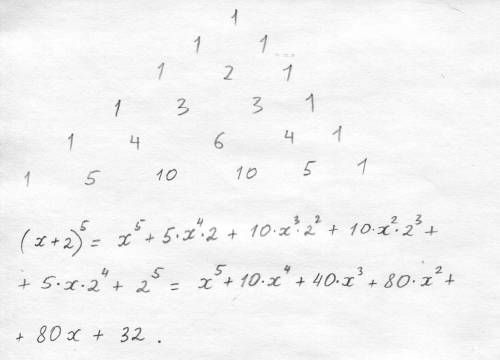 1
1 1
1 2 1
1 3 3 1
1 4 6 4 1
1 5 10 10 5 1
(x+2)⁵ = x⁵ + 5·x⁴·2 + 10·x³·2² + 10·x²·2³ +
+ 5·x·2⁴ + 2⁵ = x⁵ + 10·x⁴ + 40·x³ + 80·x² +
+ 80x + 32.